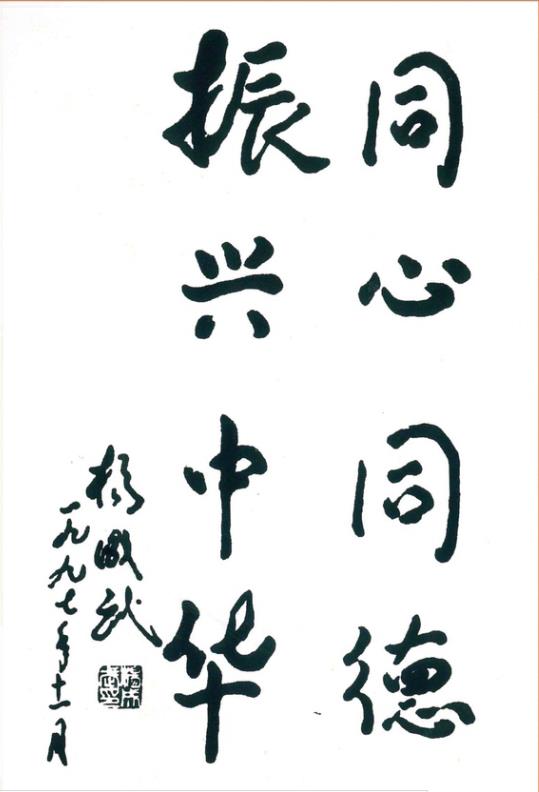 同心同德
振兴中华
杨成武
一九九七年十一月